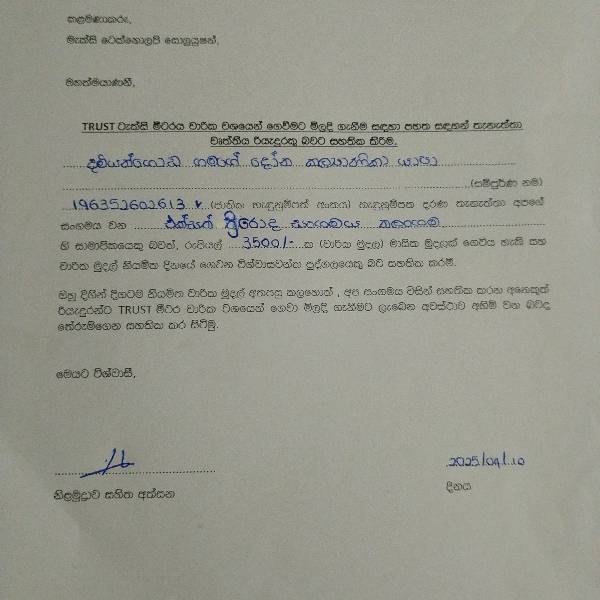 කළමණාකරු,
මැක්සි ටෙක්නොලජි සොලූයුෂන්,
මහත්මයාණනි,
TRUST ටැක්සි මීටරය වාරික වශයෙන් ගෙවීමට මිලදී ගැනීම සඳහා පහත සඳහන් තැනැත්තා
වෘත්තීය රියැදුරකු බවට සහතික කිරීම.
දමයන්ගොඩ ගමගේ දෝන කල්‍යානිකා යාපා
(සම්පූර්ණ නම)
196352602613 v (ජාතික හැඳුනුම්පත් අංකය) හැඳුනුම්පත දරණ තැනැත්තා අපගේ
සංගමය වන එක්සත් ත්‍රීරෝද සංගමය කළාගම
හි සාමාජිකයෙකු බවත්, රුපියල් 3500/- ක (වාරික මුදල) මාසික මුදලක් ගෙවිය හැකි සහ
වාරික මුදල් නියමිත දිනයේ ගෙවන විශ්වාසවන්ත පුද්ගලයෙකු බව සහතික කරමි.
ඔහු දිගින් දිගටම නියමිත වාරික මුදල් අතපසු කලහොත් , අප සංගමය විසින් සහතික කරන අනෙකුත්
රියැදුරන්ට TRUST මීටර වාරික වශයෙන් ගෙවා මිලදී ගැනීමට ලැබෙන අවස්ථාව අහිමි වන බවද
තේරුම්ගෙන සහතික කර සිටිමු.
මෙයට විශ්වාසී,
2025/04/10
නිළමුද්‍රාව සහිත අත්සන
දිනය